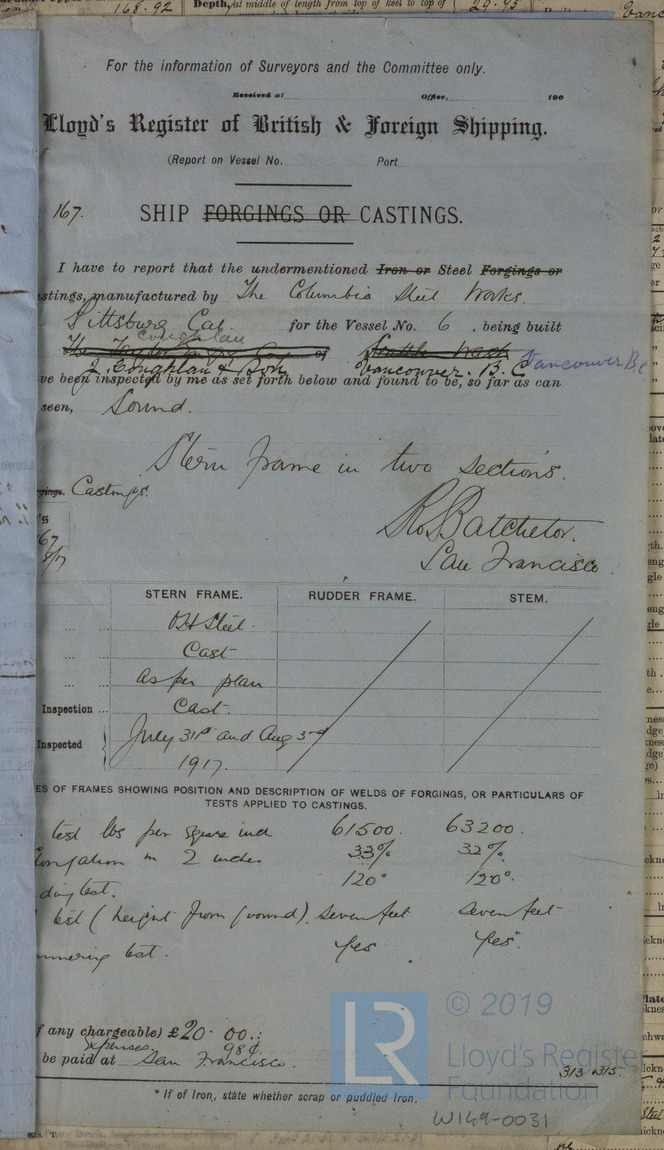 168.92 Depth, at middle of length from top of keel to top of 29.95
For the information of Surveyors and the Committee only.
Received at Office, 190
Lloyd's Register of British & Foreign Shipping.
(Report on Vessel No. Port
167. SHIP FORGINGS OR CASTINGS.
I have to report that the undermentioned Iron or Steel Forgings or
astings, manufactured by The Columbia Steel Works.
Pittsburg Cal. for the Vessel No. 6, being built
Coughlan
of Seattle Wash Vancouver BC
J. Coughlan & Son Vancouver. B.C
ve been inspected by me as set forth below and found to be, so far as can
seen, Sound.
Stern frame in two sections.
gings. Castings.
's
67
8/17
Batchelor.
San Francisco.
STERN FRAME. RUDDER FRAME. STEM.
OH Steel.
Cast
as per plan
Inspection Cast.
Inspected July 31st and Aug 3rd
1917.
ES OF FRAMES SHOWING POSITION AND DESCRIPTION OF WELDS OF FORGINGS, OR PARTICULARS OF
TESTS APPLIED TO CASTINGS.
test lbs per square inch 61500. 63200.
longation in 2 inches 33% 32%.
ding test. 120° 120°.
test (height from ground). Seven feet Seven feet
mmering test. Yes Yes.
f any chargeable) £20.00.:
expenses. 98¢.
be paid at San Francisco.
313 0315
* If of Iron, state whether scrap or puddled Iron.
LR © 2019
Lloyd's Register
Foundation
W149-0031